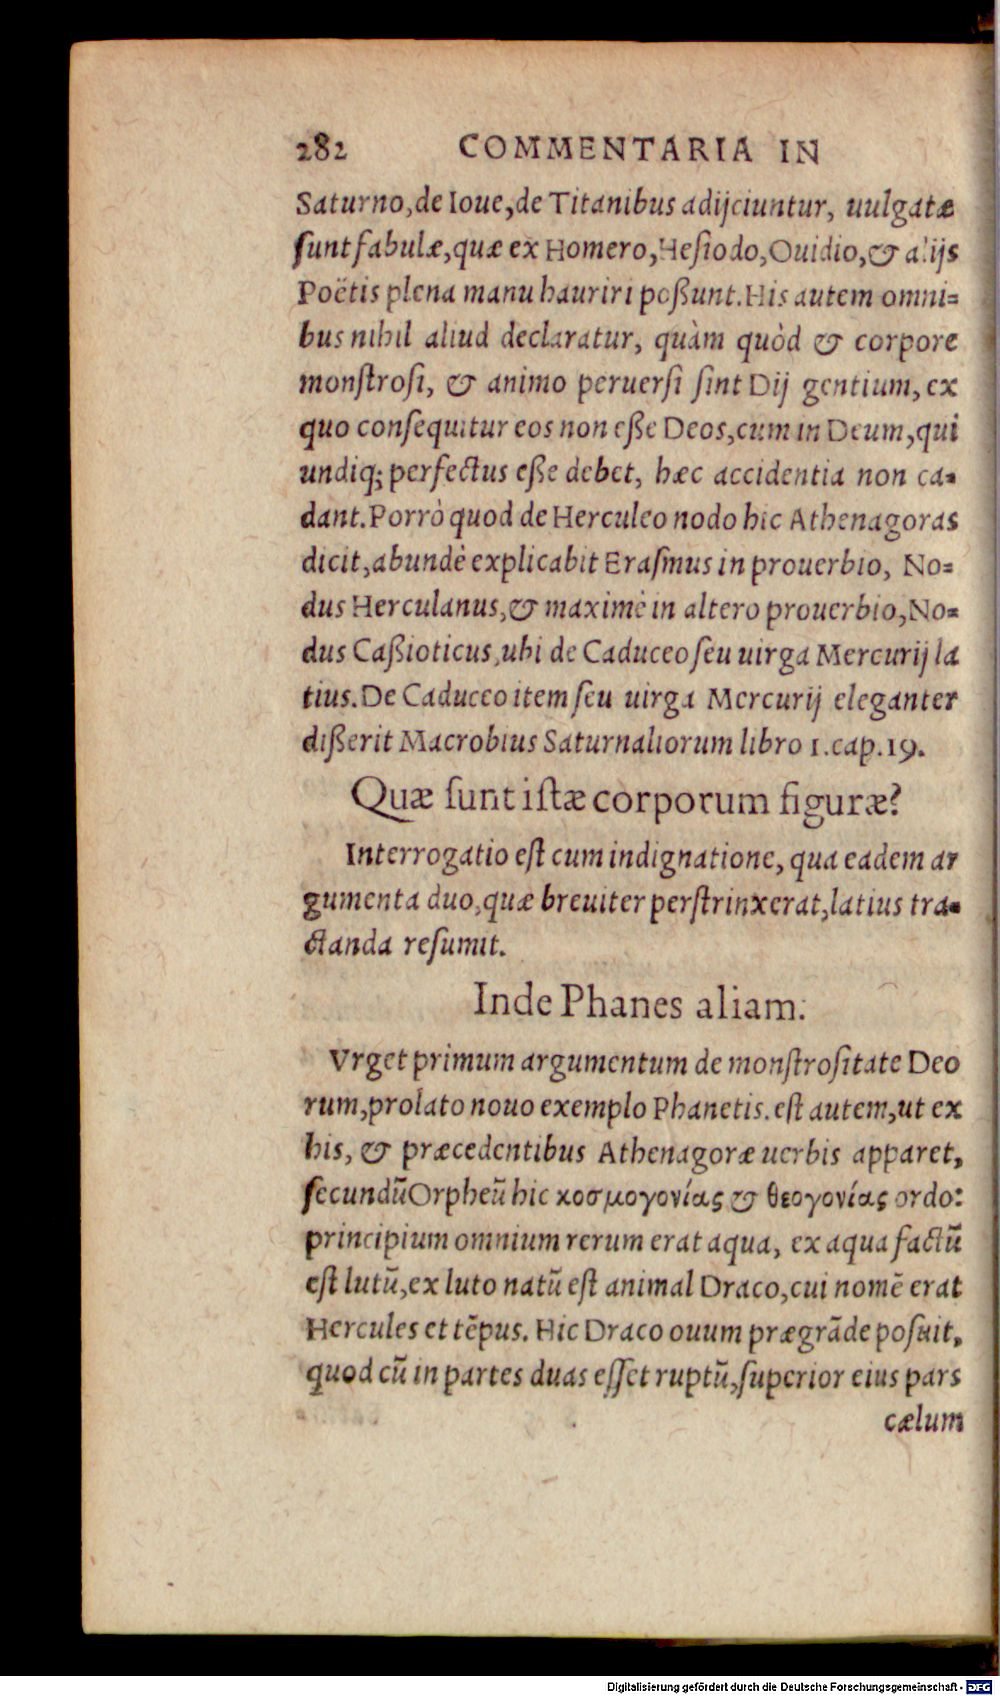 282 COMMENTARIA IN
Saturno, de Ioue, de Titanibus adijciuntur, uulgatæ
ſunt fabulæ, quæ ex Homero, Heſiodo, Ouidio, & alijs
Poëtis plena manu hauriri poßunt. His autem omni=
bus nihil aliud declaratur, quàm quòd & corpore
monſtroſi, & animo peruerſi ſint Dij gentium, ex
quo conſequitur eos non eße Deos, cum in Deum, qui
undiq; perfectus eße debet, hæc accidentia non ca=
dant. Porrò quod de Herculeo nodo hic Athenagoras
dicit, abundè explicabit Eraſmus in prouerbio, No=
dus Herculanus, & maximè in altero prouerbio, No=
dus Caßioticus, ubi de Caduceo ſeu uirga Mercurij la
tius. De Caduceo item ſeu uirga Mercurij eleganter
dißerit Macrobius Saturnaliorum libro 1. cap. 19.
Quæ ſunt iſtæ corporum figuræ?
Interrogatio eſt cum indignatione, qua eadem ar
gumenta duo, quæ breuiter perſtrinxerat, latius tra=
ctanda reſumit.
Inde Phanes aliam.
Vrget primum argumentum de monſtroſitate Deo
rum, prolato nouo exemplo Phanetis. eſt autem, ut ex
his, & præcedentibus Athenagoræ uerbis apparet,
ſecundũ Orpheũ hic κοσμογονίας & θεογονίας ordo:
principium omnium rerum erat aqua, ex aqua factũ
eſt lutũ, ex luto natũ eſt animal Draco, cui nomẽ erat
Hercules et tẽpus. Hic Draco ouum prægrãde poſuit,
quod cũ in partes duas eſſet ruptũ, ſuperior eius pars
cælum
Digitalisierung gefördert durch die Deutsche Forschungsgemeinschaft - DFG